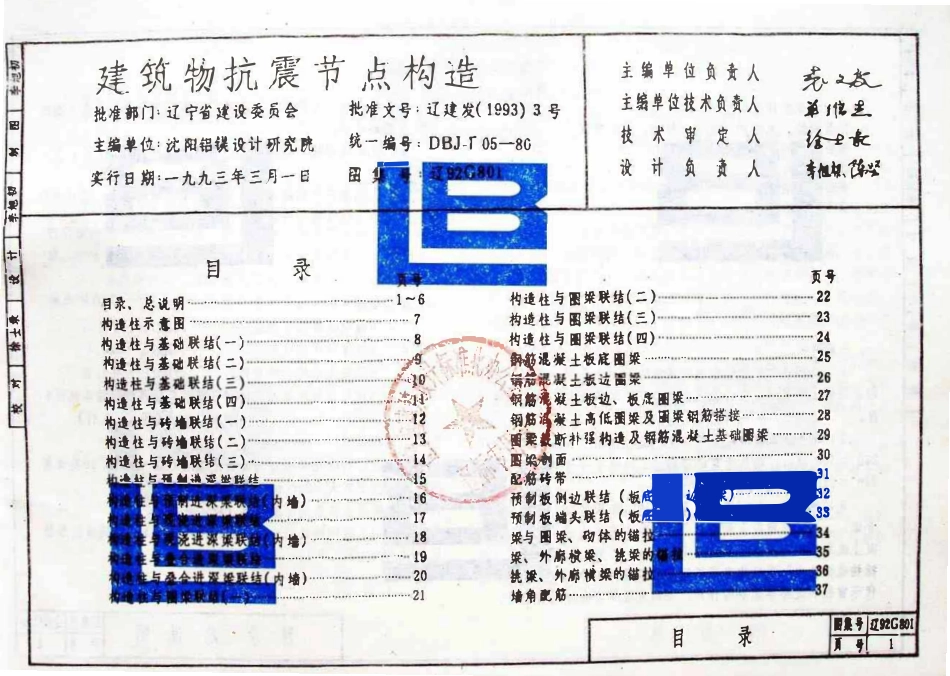 建筑物抗震节点构造
批准部门:辽宁省建设委员会
批准文号:辽建发(1993)3号
主编单位:沈阳铝镁设计研究院
统一编号:DBJ-T05-86
实行日期:一九九三年三月一日
图集号:辽92G801
主编单位负责人
主编单位技术负责人
技术审定人
设计负责人
目录
页号
目录、总说明 1~6
构造柱示意图 7
构造柱与基础联结(一) 8
构造柱与基础联结(二) 9
构造柱与基础联结(三) 10
构造柱与基础联结(四) 11
构造柱与砖墙联结(一) 12
构造柱与砖墙联结(二) 13
构造柱与砖墙联结(三) 14
构造柱与预制进深梁联结 15
构造柱与预制进深梁联结(内墙) 16
构造柱与现浇进深梁联结 17
构造柱与现浇进深梁联结(内墙) 18
构造柱与叠合进深梁联结 19
构造柱与叠合进深梁联结(内墙) 20
构造柱与圈梁联结(一) 21
页号
构造柱与圈梁联结(二) 22
构造柱与圈梁联结(三) 23
构造柱与圈梁联结(四) 24
钢筋混凝土板底圈梁 25
钢筋混凝土板边圈梁 26
钢筋混凝土板边、板底圈梁 27
钢筋混凝土高低圈梁及圈梁钢筋搭接 28
圈梁截断补强构造及钢筋混凝土基础圈梁 29
圈梁剖面 30
配筋砖带 31
预制板侧边联结(板底 边 ) 32
预制板端头联结(板底 ) 33
梁与圈梁、砌体的锚拉 34
梁、外廊横梁、挑梁的锚拉 35
挑梁、外廊横梁的锚拉 36
墙角配筋 37
目录
图集号 辽92G801
页号 1
制图
设计
校对